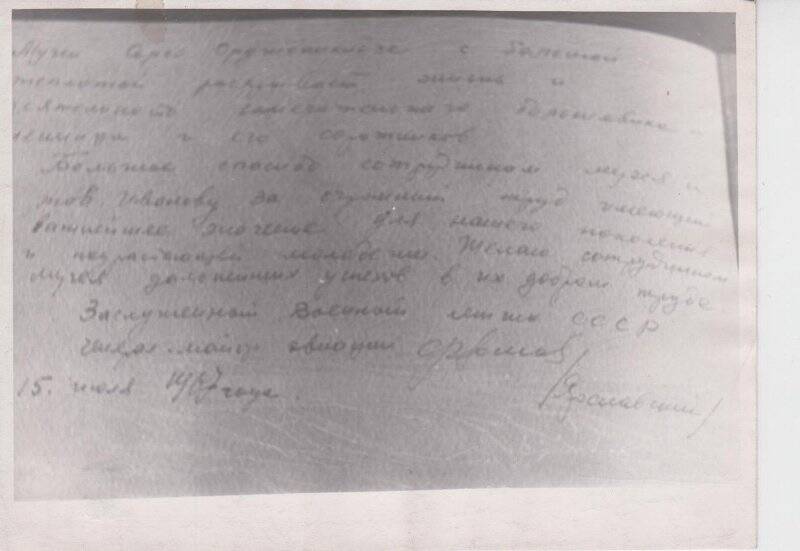 Музей Серго Орджоникидзе с большой
теплотой раскрывает жизнь и
деятельность замечательного большевика -
ленинца и его соратников
Большое спасибо сотрудникам музея и
тов. Иванову за огромный труд имеющий
важнейшее значение для нашего поколения
и подрастающей молодежи. Желаю сотрудникам
музея дальнейших успехов в их добром труде
Заслуженный Военный летчик СССР
генерал-майор авиации
15. июля 1967 года.